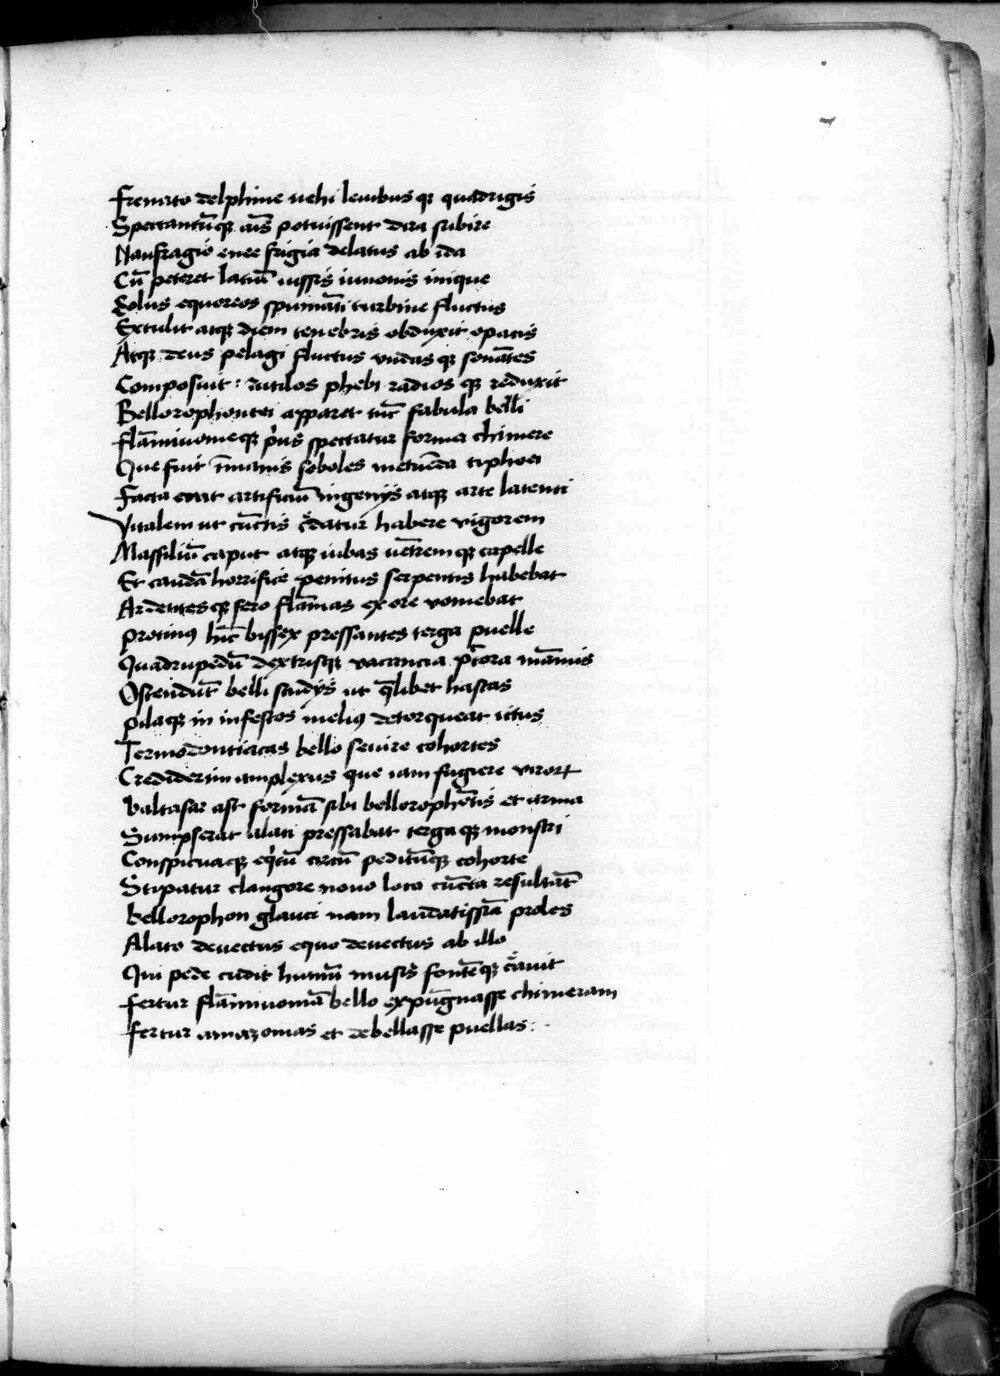 Frenato delphine uehi leuibus qꝫ quadrigis
Spectantūqꝫ aīs potuissent dira subire
Naufragio enee frigia delatus ab ida
Cū peteret latiū iussis iunonis inique
Eolus equoreos spumāti turbine fluctus
Extulit atqꝫ diem tenebris obduxit opacis
Atqꝫ deus pelagi fluctus undas qꝫ sonātes
Composuit : rutilos phebi radios qꝫ reduxit
Bellorophontei apparet tūc fabula belli
Flāmiuomeqꝫ prius spectatur forma chimere
Que fuit īmanis soboles metuēda tiphoei
Facta erat artificiū ingenijs atqꝫ arte latenti
Vitalem ut cūctis c̄datur habere vigorem
Massiliū caput atqꝫ iubas uētremqꝫ capelle
Et caudā horrifice penitus serpentis habebat
Ardentesqꝫ fero flāmas ex ore vomebat
Protinus hīc bissex pressantes terga puelle
Quadrupedū dextrisqꝫ vacancia p̄tora māmis
Ostendūt belli studijs ut q̄libet hastas
Pilaqꝫ in infestos melius detorqueat ictus
Termodontiacas bello seuire cohortes
Crediderim amplexus que iam fugiere virorꝝ
Baltasar ast formā sibi bellorophōtis et arma
Sumpserat alati pressabat tergaqꝫ monstri
Conspicuaqꝫ eq̄tū circū peditūqꝫ cohorte
Stipatur clangore nouo loca cūcta resultāt
Bellorophon glauci nam laudatissīa proles
Alato deuectus equo deuectus ab illo
Qui pede cudit humū musis fontēqꝫ c̄auit
Fertur flāmiuomā bello expūgnasse chimeram
Fertur amazonas et debellasse puellas :·